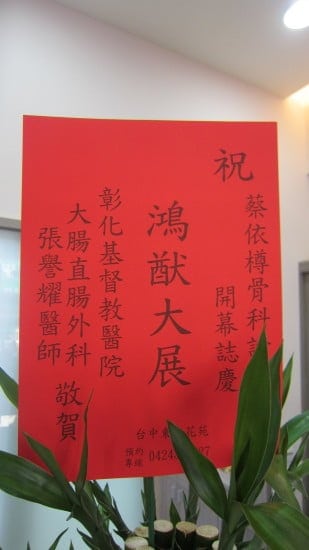 祝
蔡依樽骨科診
開幕誌慶
鴻猷大展
彰化基督教醫院
大腸直腸外科
張譽耀醫師
敬賀
台中東 花苑
預約專線 0424 07